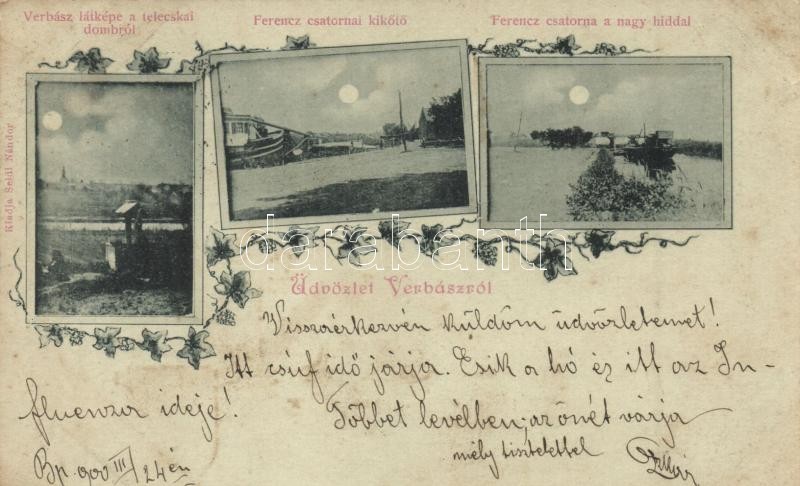 Verbász látképe a telecskai
dombról
Ferencz csatornai kikötő
Ferencz csatorna a nagy hiddal
Kiadja Szidl Nándor
darabanth
Üdvözlet Verbászról
Visszaérkezvén küldöm üdvözletemet!
Itt csúf idő járja. Esik a hó és itt az In-
fluenza ideje!
Többet levélben; azönét várja
mély tisztelettel
Bp. 900 III/24 én